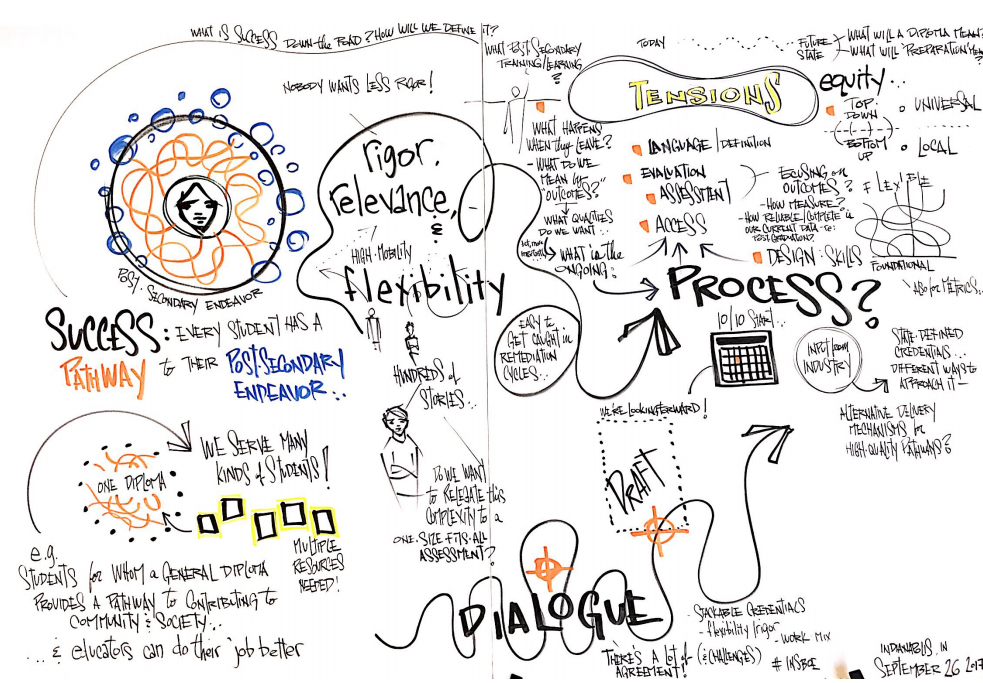 WHAT IS SUCCESS DOWN-the ROAD? HOW WILL WE DEFINE IT?
NOBODY WANTS LESS RIGOR!
POST-SECONDARY ENDEAVOR
SUCCESS: EVERY STUDENT HAS A
PATHWAY to THEIR POST-SECONDARY
ENDEAVOR...
rigor,
relevance,
&
HIGH-MOBILITY
flexibility
HUNDREDS of
STORIES...
DO WE WANT
to RELEGATE this
COMPLEXITY to a
ONE-SIZE-FITS-ALL
ASSESSMENT?
ONE DIPLOMA
WE SERVE MANY
KINDS of STUDENTS!
MULTIPLE
RESOURCES
NEEDED!
e.g.
STUDENTS for WHOM a GENERAL DIPLOMA
PROVIDES A PATHWAY to CONTRIBUTING to
COMMUNITY & SOCIETY...
... & educators can do their job better
WHAT POST-SECONDARY
TRAINING/LEARNING
?
WHAT HAPPENS
WHEN they LEAVE?
- WHAT DO WE
MEAN by
"OUTCOMES?"
WHAT QUALITIES
DO WE WANT...
WHAT is the
ONGOING:
TODAY
FUTURE
STATE
WHAT WILL a DIPLOMA MEAN?
WHAT WILL 'PREPARATION' MEAN?
TENSIONS
equity...
TOP
DOWN
BOTTOM
UP
UNIVERSAL
LOCAL
LANGUAGE/DEFINITION
EVALUATION
ASSESSMENT
ACCESS
DESIGN: SKILLS
FOCUSING on
OUTCOMES?
- HOW MEASURE?
- HOW RELIABLE/COMPLETE is
OUR CURRENT DATA-re:
POST-GRADUATION?
FLEXIBLE
FOUNDATIONAL
ALSO for METRICS...
PROCESS?
EASY to
GET CAUGHT in
REMEDIATION
CYCLES...
10/10 START...
INPUT from
INDUSTRY
STATE-DEFINED
CREDENTIALS...
DIFFERENT WAYS to
APPROACH it-
ALTERNATIVE DELIVERY
MECHANISMS for
HIGH-QUALITY PATHWAYS?
WE'RE LOOKING FORWARD!
DRAFT
DIALOGUE
- STACKABLE CREDENTIALS
- flexibility/rigor
- WORK MIX
THERE'S A LOT of (& CHALLENGES)
AGREEMENT!
# INSBOE
INDIANAPOLIS, IN
SEPTEMBER 26 2017